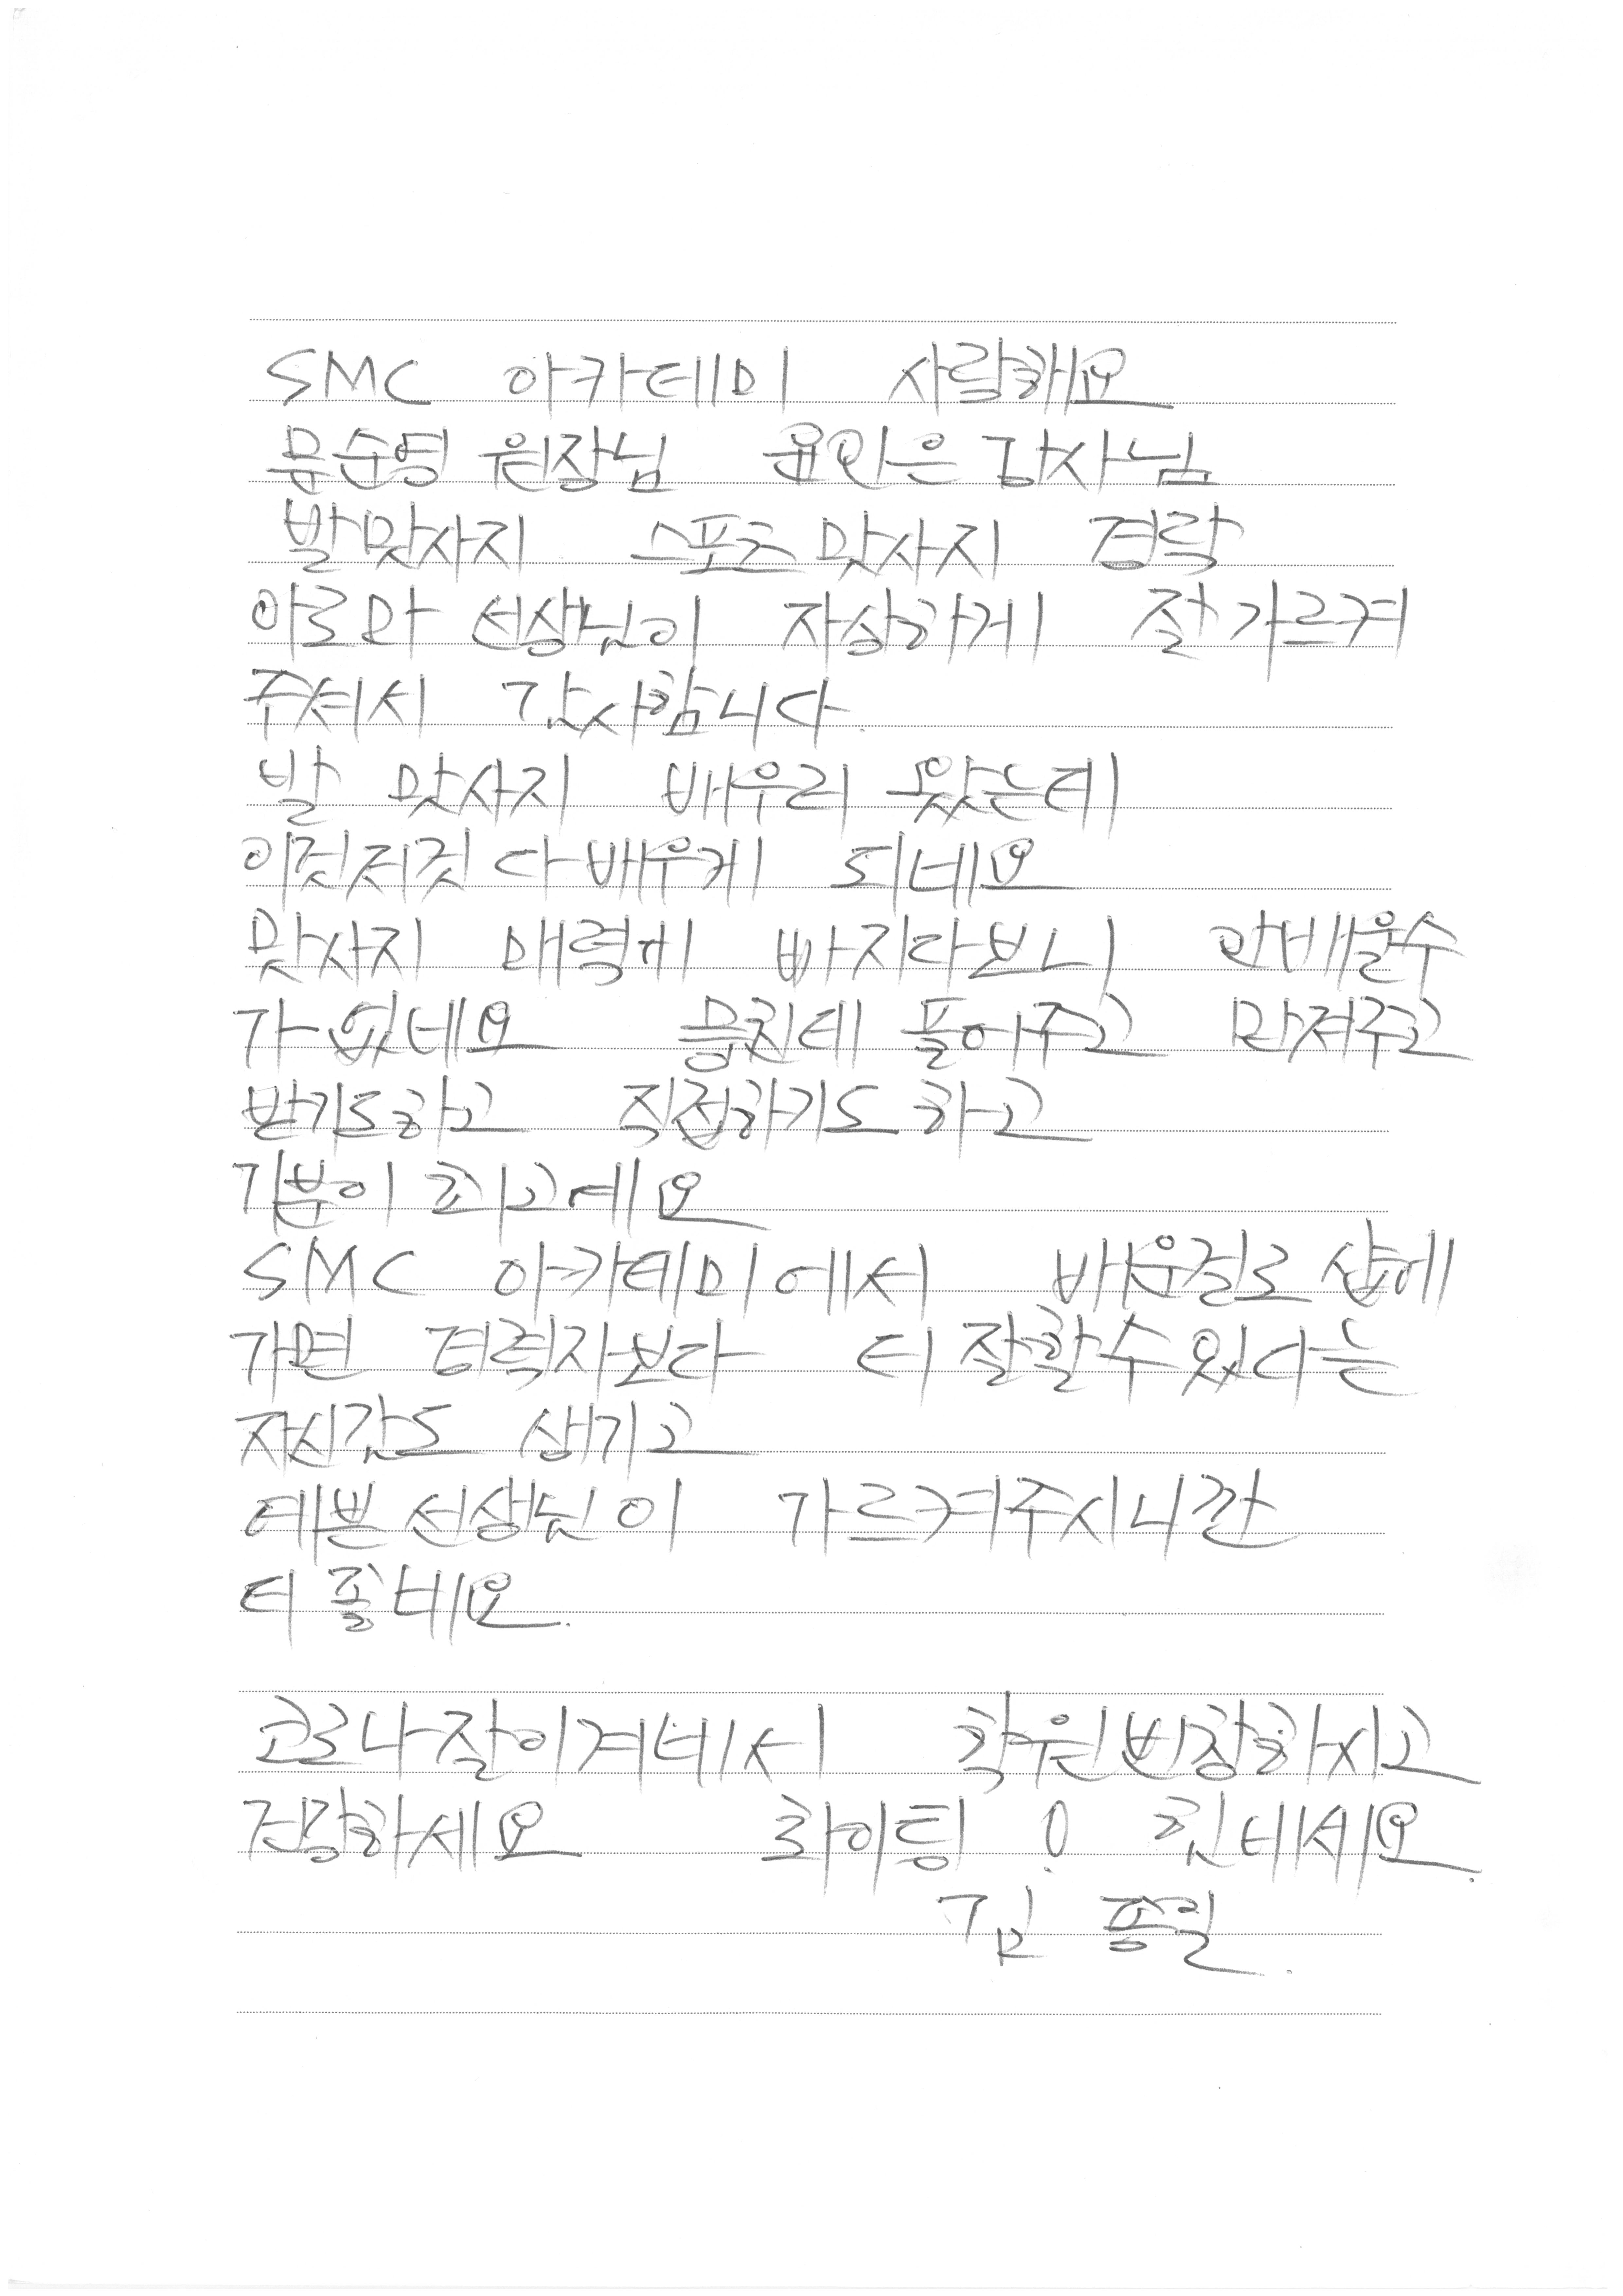 SMC 아카데미 사랑해요
문순영 원장님 윤인은 강사님
발맛사지 스포츠 맛사지 경락
아로마 선생님이 자상하게 잘 가르켜
주셔서 감사합니다.
발 맛사지 배우러 왔는데
이것저것 다 배우게 되네요
맛사지 매력게 빠지다보니 안배울수
가 없네요 뭉친데 풀어주고 만져주고
받기도하고 직접하기도 하고
기분이 최고예요
SMC 아카데미에서 배우질로 샵에
가면 경력자보다 더 잘할수 있다는
자신감도 생기고
예쁜 선생님이 가르켜주시니깐
더 좋네요.
코로나 잘이겨네서 학원번창하시고
건강하세요 화이팅! 힌네세요.
김